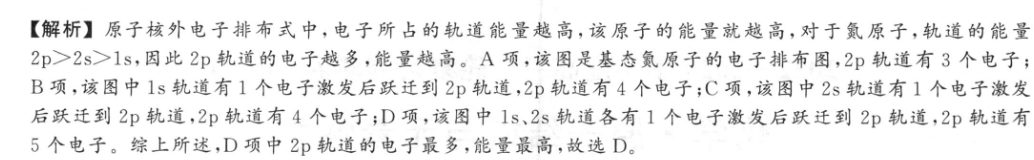 【解析】原子核外电子排布式中,电子所占的轨道能量越高,该原子的能量就越高,对于氮原子,轨道的能量
2p>2s>1s,因此 2p 轨道的电子越多,能量越高。A 项,该图是基态氮原子的电子排布图,2p 轨道有 3 个电子;
B 项,该图中 1s 轨道有 1 个电子激发后跃迁到 2p 轨道,2p 轨道有 4 个电子;C 项,该图中 2s 轨道有 1 个电子激发
后跃迁到 2p 轨道,2p 轨道有 4 个电子;D 项,该图中 1s、2s 轨道各有 1 个电子激发后跃迁到 2p 轨道,2p 轨道有
5 个电子。综上所述,D 项中 2p 轨道的电子最多,能量最高,故选 D。